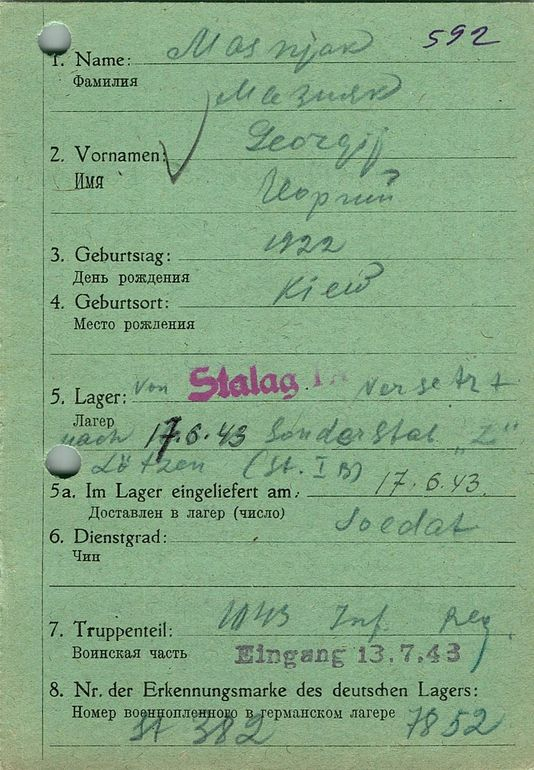 592
1. Name: Masnjak
Фамилия
Мазняк
2. Vornamen: Georgij
Имя
3. Geburtstag: 1922
День рождения
4. Geburtsort: Kiew
Место рождения
5. Lager: von Stalag versetzt
Лагер
nach 17.6.43 Sonder Stal "Z"
Lötzen (St. I B)
5a. Im Lager eingeliefert am: 17.6.43.
Доставлен в лагер (число)
6. Dienstgrad: Soldat
Чин
7. Truppenteil: 1043 Inf Reg.
Воинская часть
Eingang 13.7.43
8. Nr. der Erkennungsmarke des deutschen Lagers:
Номер военнопленного в германском лагере
382 7852